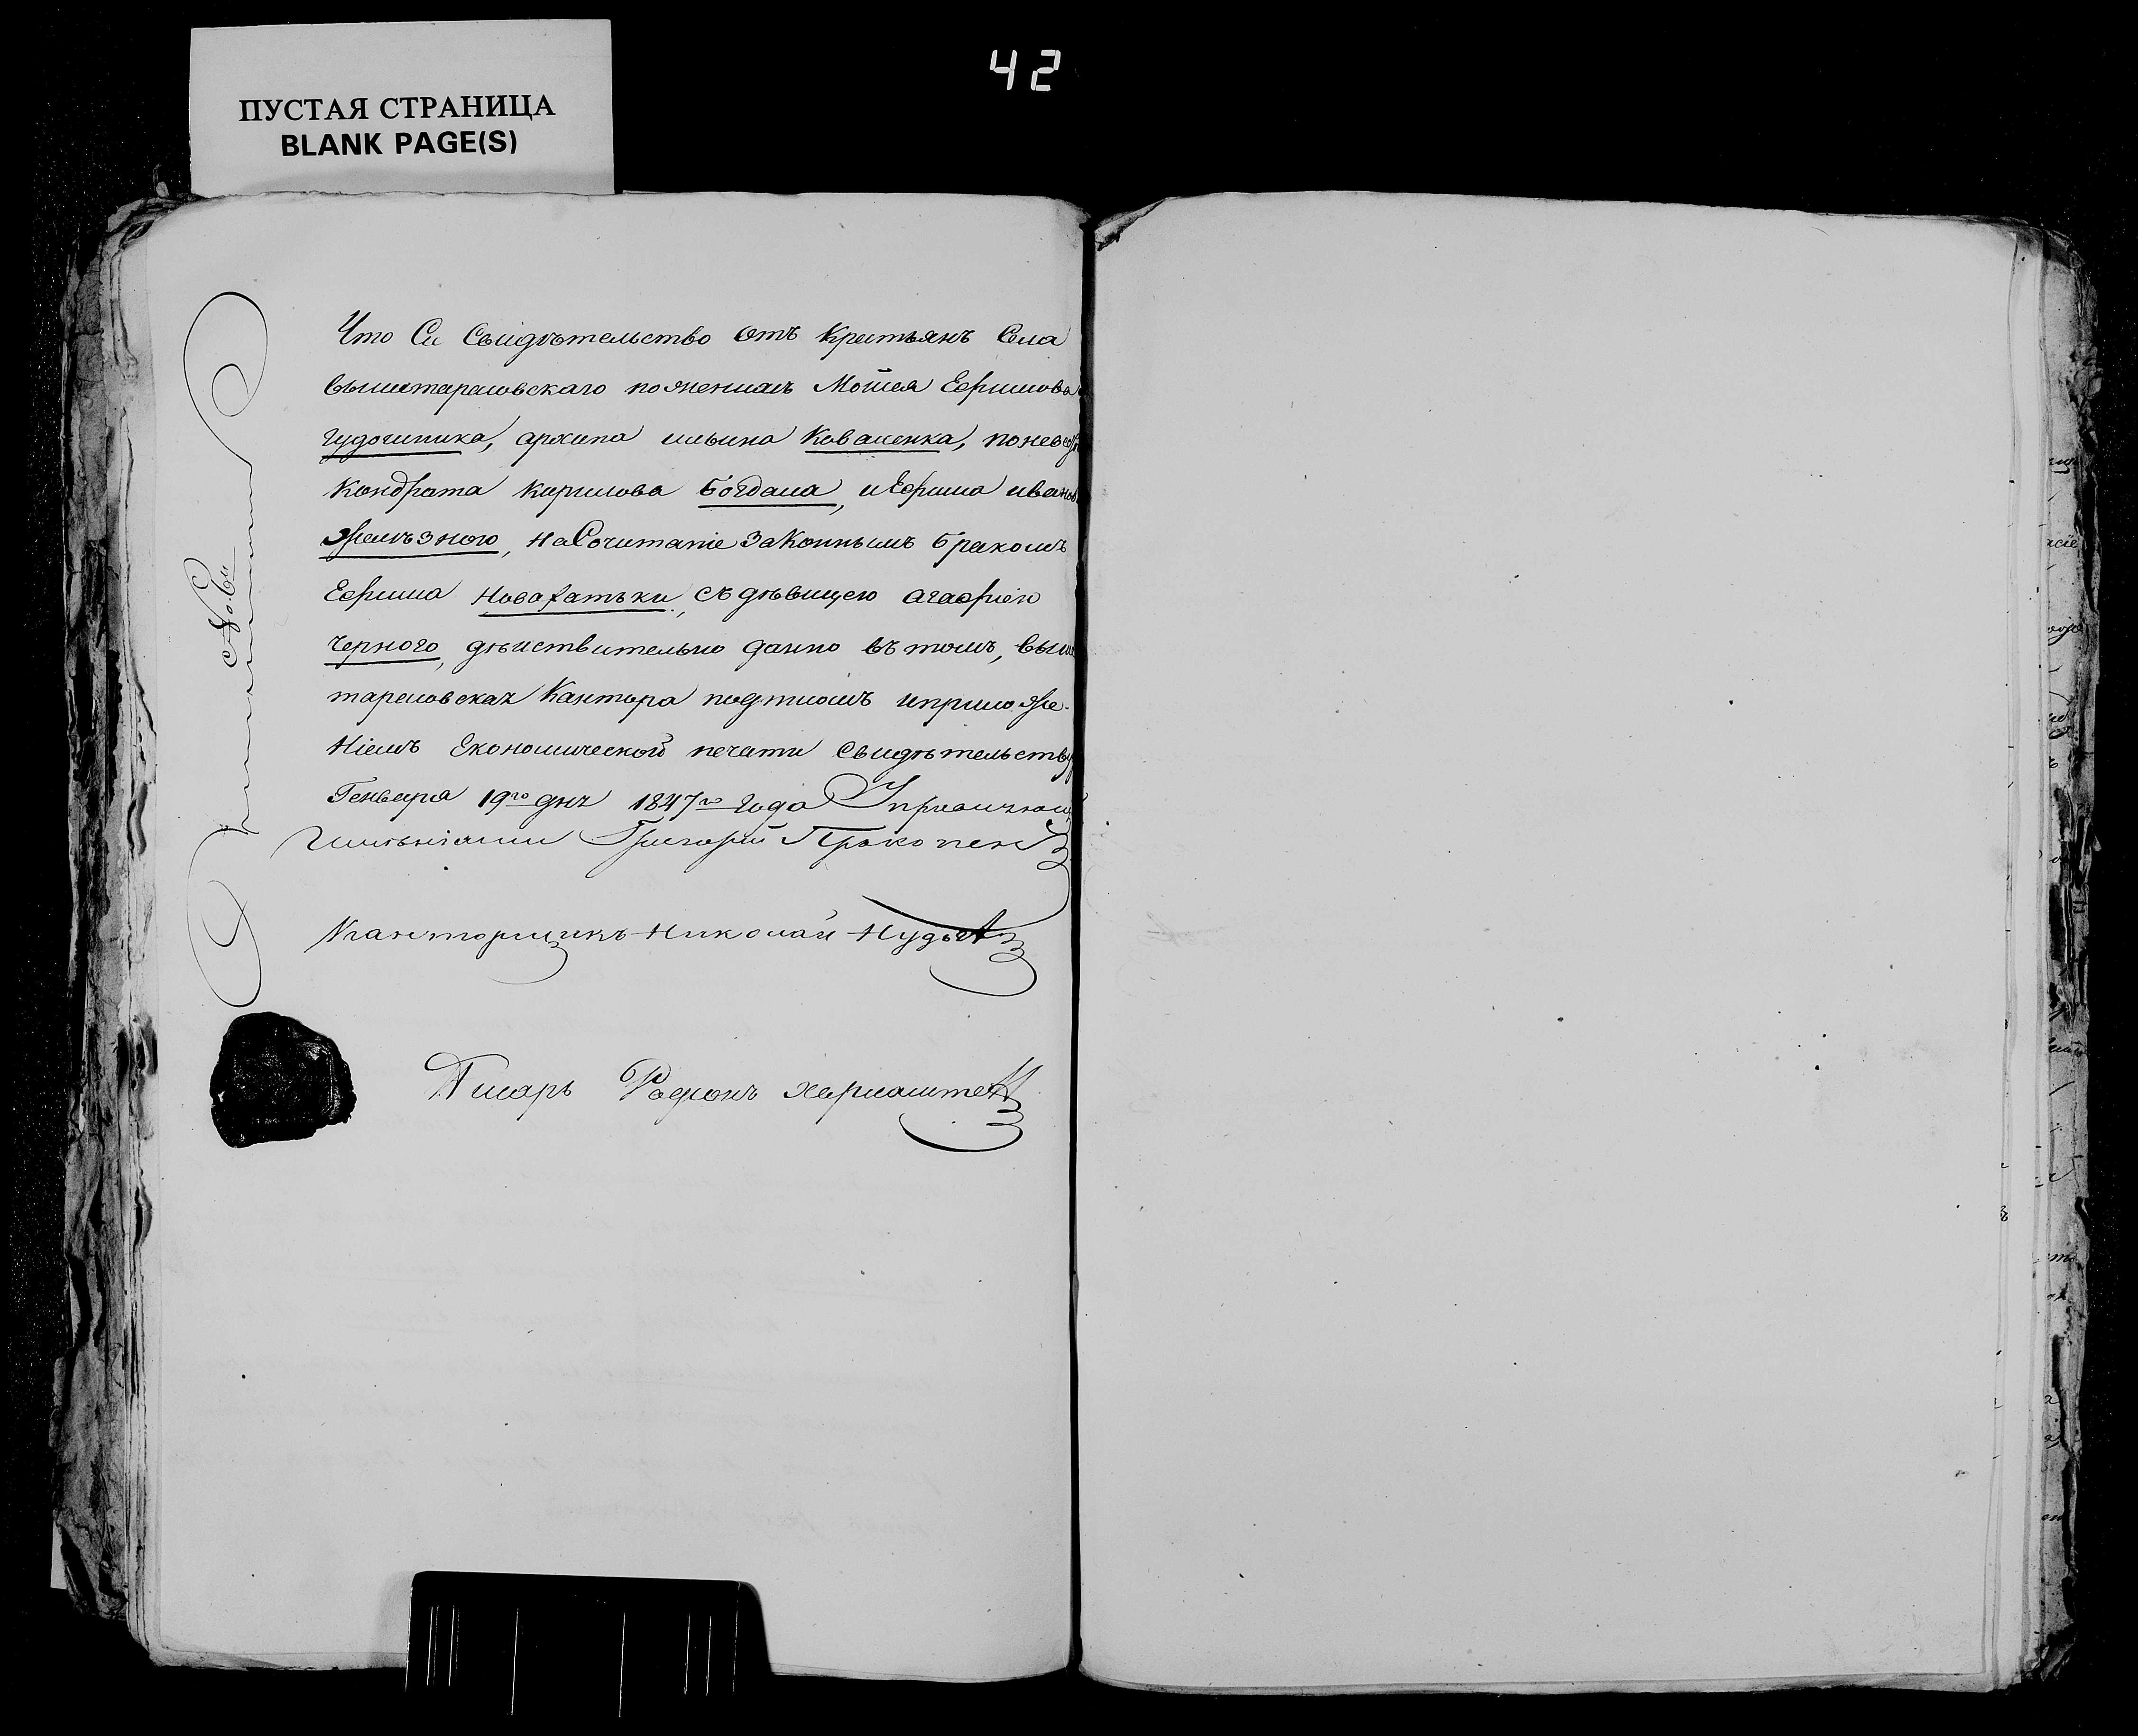 42
ПУСТАЯ СТРАНИЦА
BLANK PAGE(S)
Что Си Свидѣтельство Отъ Крестьянъ Села
вышетарасовскаго по женихѣ Мойсея Ефимова
гудошника, архипа ильина Коваленка, поневѣст
Кондрата Кирилова Богдана, и Ефима иванова
Желѣзного, на Сочитаніе Законнымъ бракомъ
Ефима Новохатьки, съ дѣвицею агафіею
Черного, дѣйствительно данно въ томъ, выше
тарасовская Кантора подписомъ иприложе-
Ніемъ Економической печати Свидѣтельству
Генваря 19го дня 1847го года Управляющ
имѣніями Григорій Прокопен
Канторщикъ Николай Нудьга
Писарь Родіонъ
№ 6й